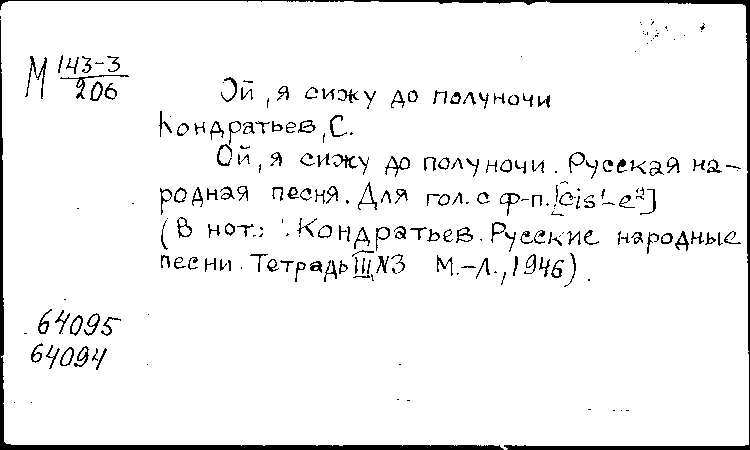 М 143-3
206
Ой, я сижу до полуночи
Кондратьев, С.
Ой, я сижу до полуночи. Русская на-
родная песня. Для гол. с ф-п. [cis¹-e²]
(В нот.: Кондратьев. Русские народные
песни. Тетрадь III, №3 М.-Л., 1946).
64095
64094